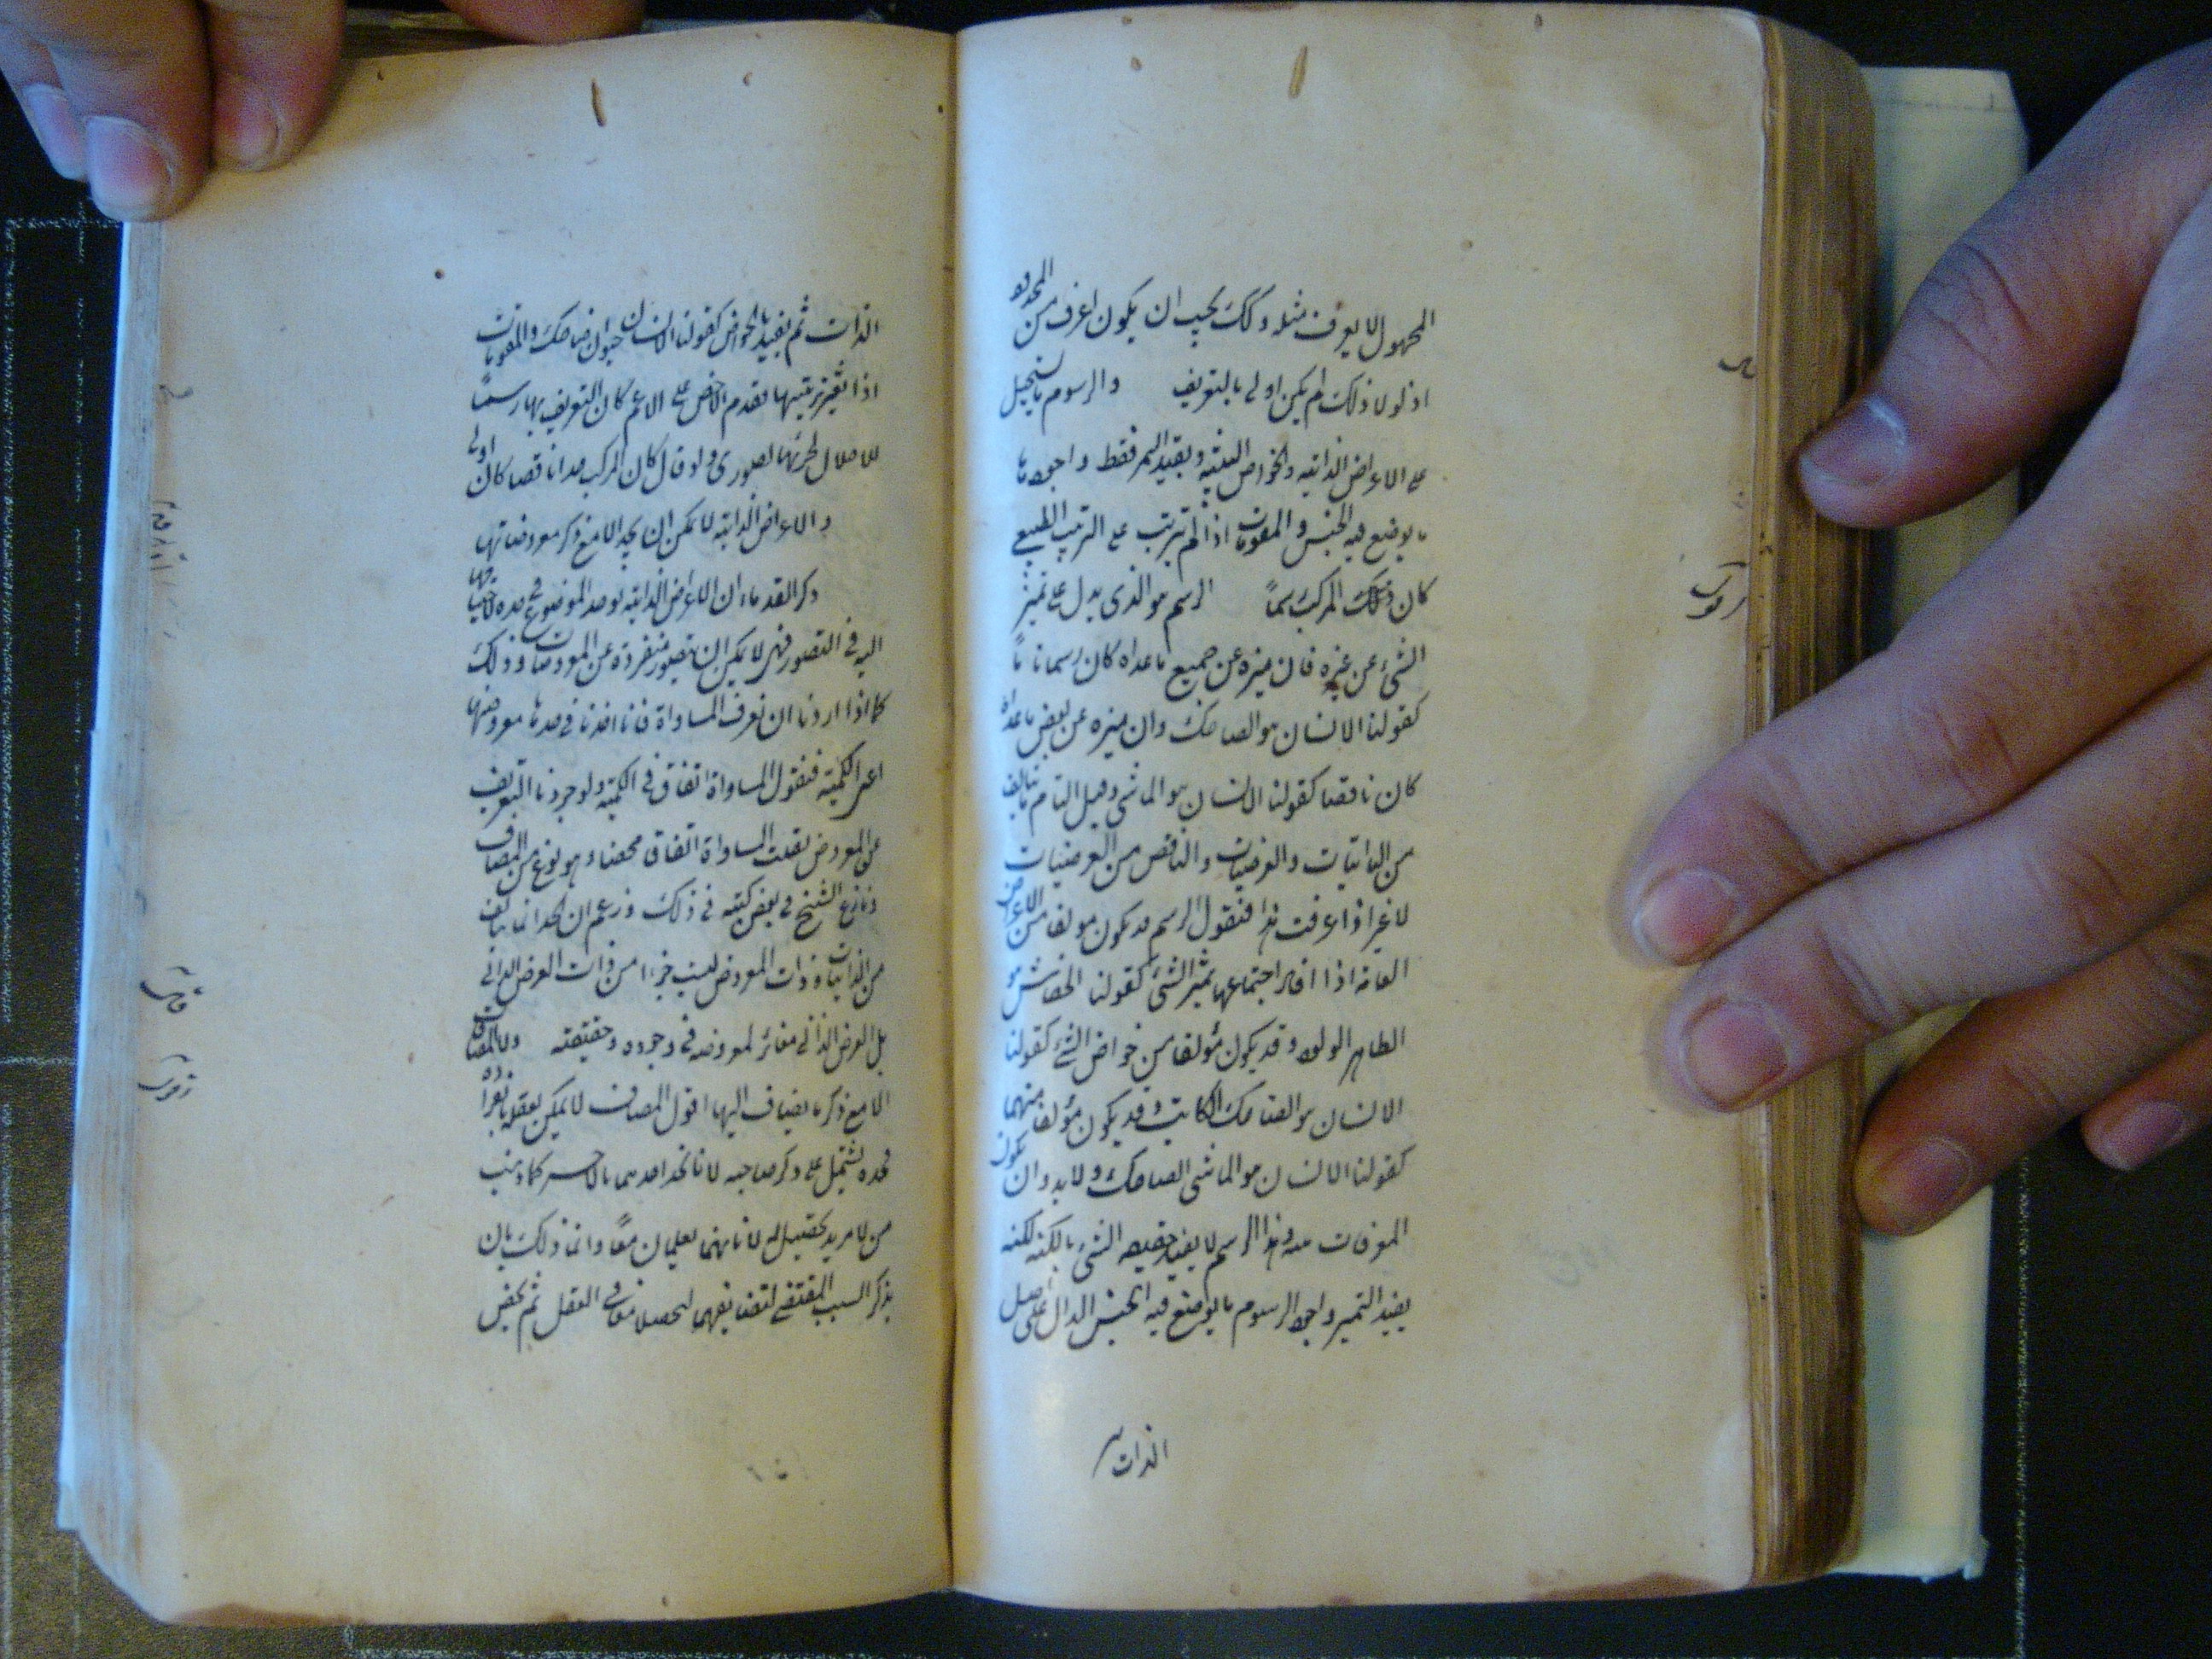 المجهول لا يعرف مثله وكك يجب ان يكون اعرف من المحدود
اذ لولا ذلك لم يكن اولى بالتعريف والرسوم
على الاعراض الذاتية والخواص البينة ويفيد التميز فقط واجودها
ما يوضع فيه الجنس والمقومات اذا لم ترتب على الترتيب الطبيعي
كان ذلك المركب رسماً الرسم هو الذي يدل على تميز
الشئ عن غيره فان ميزه عن جميع ما عداه كان رسما تاماً
كقولنا الانسان هو الضاحك وان ميزه عن بعض ما عداه
كان ناقصا كقولنا الانسان هو الماشي وقيل التام ما يتالف
من الذاتيات والعرضيات والناقص من العرضيات
لا غير اذا عرفت هذا فنقول الرسم قد يكون مولفا من الاعراض
العامة اذا افاد اجتماعها تميز الشئ كقولنا الخفاش هو
الطاير الولود وقد يكون مؤلفا من خواص الشئ كقولنا
الانسان هو الضاحك الكاتب وقد يكون مؤلفا منهما
كقولنا الانسان هو الماشي الضاحك ولا بد وان يكون
المعرفات بينة وهذا الرسم لا يفيد حقيقة الشئ بالكنه لكنه
يفيد التميز واجود الرسوم ما يوضع فيه الجنس الدال على اصل
الذات
الذات ثم يفيد بالخواص كقولنا الانسان حيوان ضاحك والمقومات
اذا تغير ترتيبها بتقدم الاخص على الاعم كان التعريف بها رسماً
للاخلال بجزئها الصوري ولو قال كان المركب حدا ناقصا كان اولى
والاعراض الذاتية لا يمكن ان تحد الا مع ذكر معروضاتها
ذكر القدماء ان الاعراض الذاتية يوخذ الموضوع في حدها لاحتياجها
اليه في التصور فهي لا يمكن ان تتصور منفردة عن المعروضات وذلك
كما اذا اردنا ان نعرف المساواة فانا اخذنا في حدها معروضها
اعنى الكمية فنقول المساواة اتفاق في الكمية ولو جردنا التعريف
عن المعروض لقلت المساواة اتفاق محضا وهو نوع من المضاف
ونازع الشيخ في بعض كتبه في ذلك وزعم ان الحد انما يتالف
من الذاتيات وذات المعروض ليست جزءا من ذات العرض الذاتي
بل العرض الذاتي مغائر لمعروضه في وجوده وحقيقته ولا المضاف
الا مع ذكر ما يضاف اليها اقول المضاف لا يمكن تعقله بانفراده
فحده يشتمل على ذكر صاحبه لا بان نحد احدهما بالاخر كما ذهب
من لا مزيد تحصيل له لانهما يعلمان معاً وانما ذلك بان
يذكر السبب المقتضي لتضايفهما ليحصلا معا في العقل ثم يخص